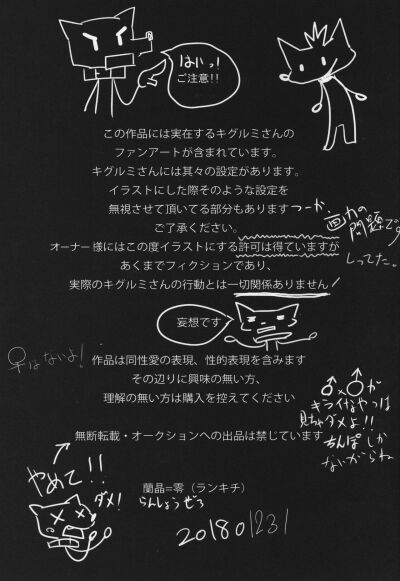 はいっ!
ご注意!!
この作品には実在するキグルミさんの
ファンアートが含まれています。
キグルミさんには其々の設定があります。
イラストにした際そのような設定を
無視させて頂いてる部分もあります
つーか、
画力の
問題です
しってた。
ご了承ください。
オーナー様にはこの度イラストにする許可は得ていますが
あくまでフィクションであり、
実際のキグルミさんの行動とは一切関係ありません!
妄想です
♀はないよ!
作品は同性愛の表現、性的表現を含みます
その辺りに興味の無い方、
理解の無い方は購入を控えてください
♂×♂が
キライなやつは
見ちゃダメよ!!
ちんぽしか
ないからね
無断転載・オークションへの出品は禁じています
やめて!!
ダメ!
蘭晶=零(ランキチ)
らんしょうぜろ
201801231